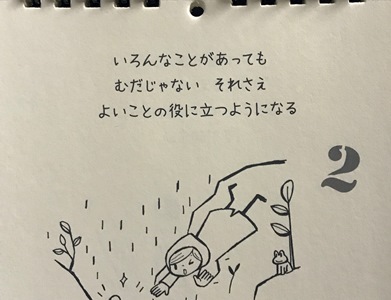 いろんなことがあっても
むだじゃない それさえ
よいことの役に立つようになる
2